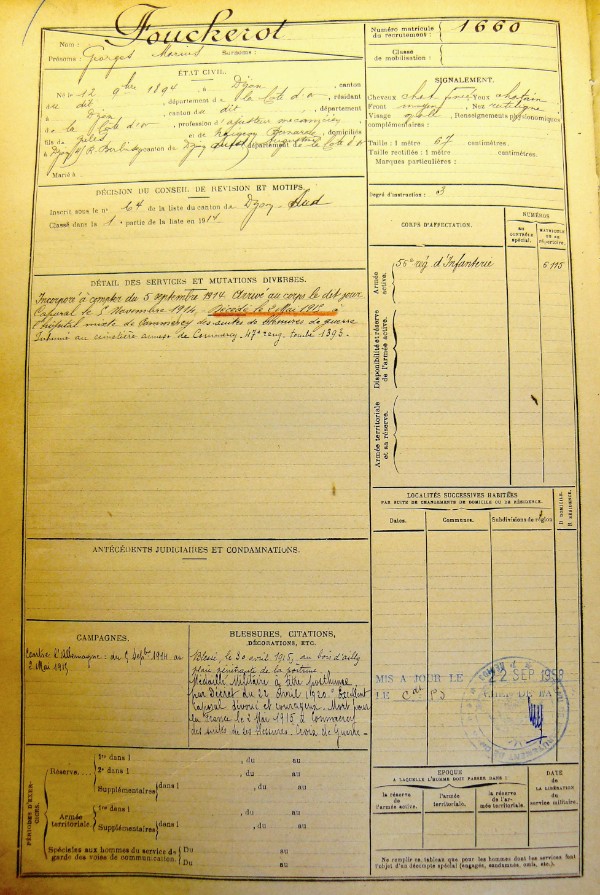 Nom : Foucherot
Prénoms : Georges Marius Surnoms :
Numéro matricule du recrutement : 1660
Classe de mobilisation :
ÉTAT CIVIL.
Né le 12 9bre 1894, à Dijon, canton
du dit, département d la Côte d'or, résidant
à Dijon, canton du dit, département
d la Côte d'or, profession d'ajusteur mécanicien
fils de Gilles et de domiciliés
à Dijon canton de Dijon département de la Côte d'or
Marié à
SIGNALEMENT.
Cheveux chat yeux chatain
Front moyen, Nez rectiligne
Visage ovale, Renseignements physionomiques
complémentaires :
Taille : 1 mètre 67 centimètres.
Taille rectifiée : 1 mètre centimètres.
Marques particulières :
DÉCISION DU CONSEIL DE RÉVISION ET MOTIFS.
Inscrit sous le n° 64 de la liste du canton de Dijon Sud
Classé dans la 1e partie de la liste en 1914
Degré d'instruction : 3
CORPS D'AFFECTATION.
NUMÉROS
AU CONTRÔLE spécial.
MATRICULE OU AU répertoire.
Armée active.
56e rég. d'Infanterie
6115
Disponibilité et réserve de l'armée active.
Armée territoriale et sa réserve.
DÉTAIL DES SERVICES ET MUTATIONS DIVERSES.
Incorporé à compter du 5 septembre 1914. Arrivé au corps le dit jour
Caporal le 5 Novembre 1914. Décédé le 2 Mai 1915 à
l'hôpital mixte de Commercy des suites de blessures de guerre
Inhumé au cimetière annexe de Commercy. 47e rang. Tombe 1393.
LOCALITÉS SUCCESSIVES HABITÉES
PAR SUITE DE CHANGEMENTS DE DOMICILE OU DE RÉSIDENCE.
Dates.
Communes.
Subdivisions de région
D DOMICILE.
R RÉSIDENCE.
ANTÉCÉDENTS JUDICIAIRES ET CONDAMNATIONS.
CAMPAGNES.
Contre l'Allemagne du 5 Septbre 1914 au
2 Mai 1915
BLESSURES, CITATIONS,
DÉCORATIONS, ETC.
Blessé, le 30 avril 1915, au bois d'ailly
plaie pénétrante de la poitrine
Médaille Militaire à titre posthume
par Décret du 22 Avril 1920 "Excellent
Caporal dévoué et courageux. Mort pour
la France le 2 Mai 1915, à Commercy
des suites de ses blessures. Croix de Guerre.
MIS A JOUR LE 22 SEP
LE
PÉRIODES D'EXERCICES.
Réserve
1re dans l , du au
2e dans l , du au
Supplémentaires dans l , du au
Armée territoriale
1re dans l , du au
Supplémentaires dans l , du au
Spéciales aux hommes du service de garde des voies de communication.
Du au
Du au
ÉPOQUE
A LAQUELLE L'HOMME DOIT PASSER DANS :
la réserve de l'armée active.
l'armée territoriale.
la réserve de l'armée territoriale.
DATE
DE LA LIBÉRATION du service militaire.
Ne remplir ce tableau que pour les hommes dont les services font
l'objet d'un décompte spécial (engagés, condamnés, omis, etc.)